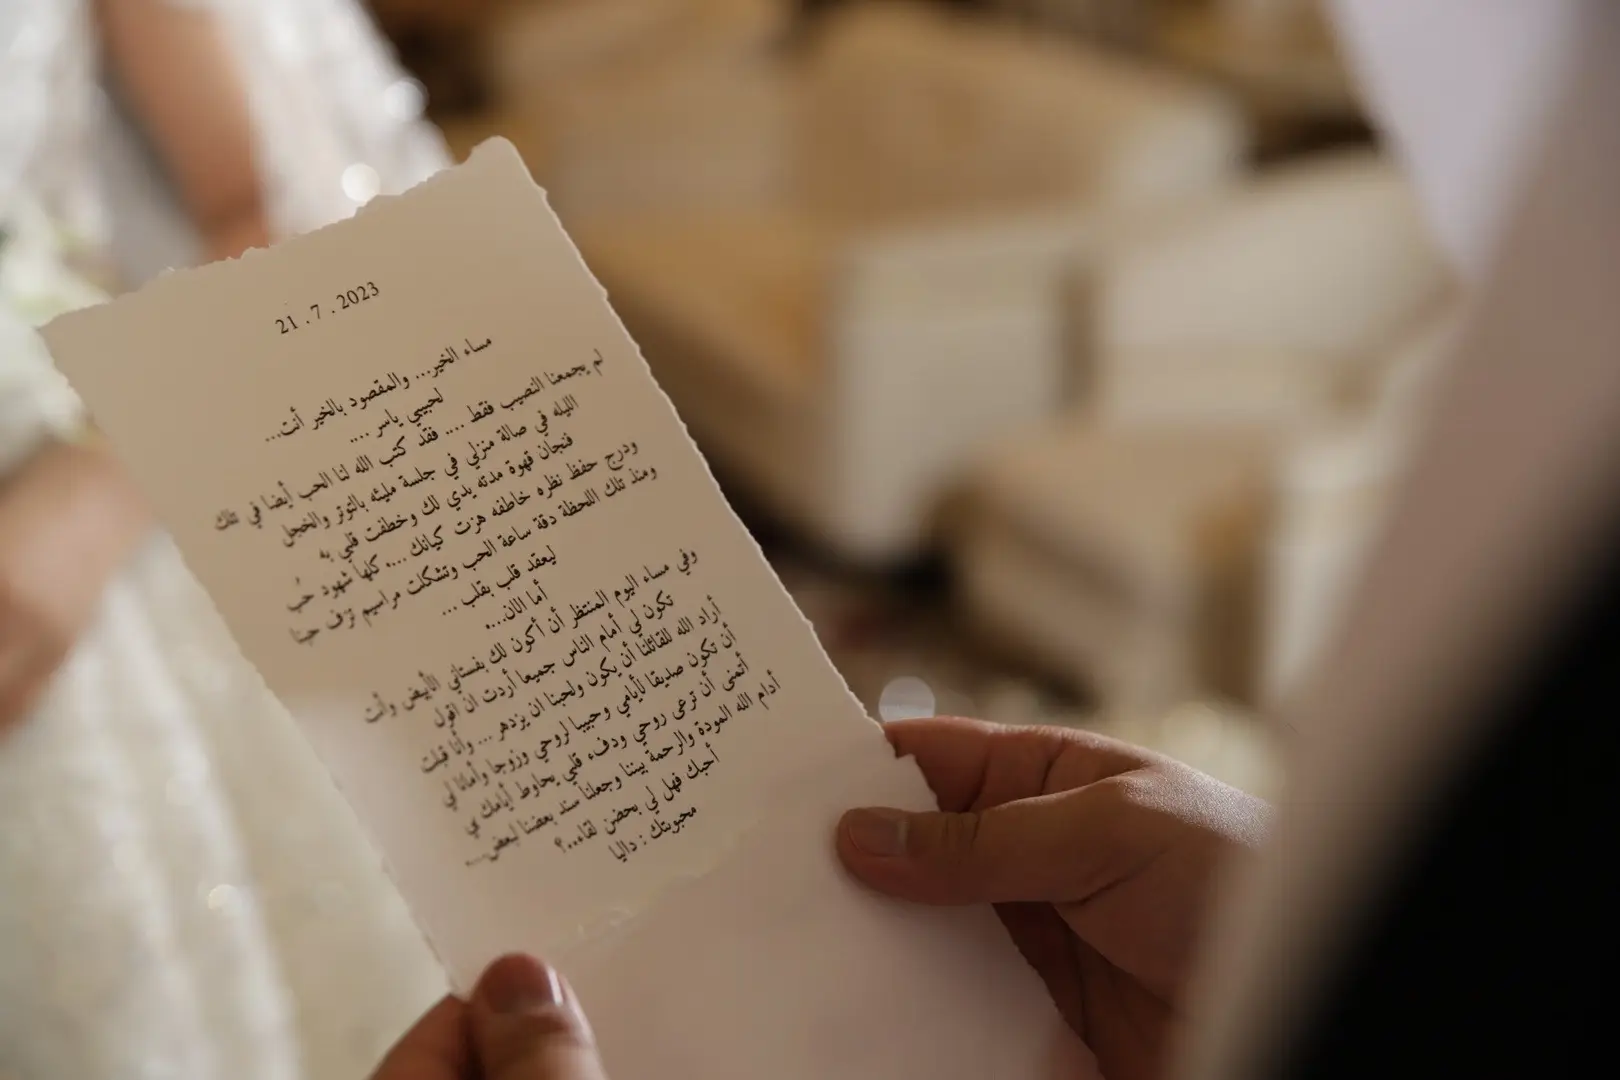 21 . 7 . 2023
مساء الخير... والمقصود بالخير أنت...
لحبيبي ياسر ....
لم يجمعنا النصيب فقط .... فقد كتب الله لنا الحب أيضا في تلك
الليله في صالة منزلي في جلسة مليئه بالتوتر والخجل
فنجان قهوة مدته يدي لك وخطفت قلبي به
ودرج حفظ نظره خاطفه هزت كيانك .... كلها شهود حُب
ومنذ تلك اللحظة دقة ساعة الحب وتشكلت مراسيم تزف حبنا
ليعقد قلب بقلب ...
أما الان....
وفي مساء اليوم المنتظر أن أكون لك بفستاني الأبيض وأنت
تكون لي أمام الناس جميعا أردت ان اقول
أراد الله للقائلنا أن يكون ولحبنا ان يزدهر ... وأنا قبلت
أن تكون صديقا لأيامي وحبيبا لروحي وزوجا وأمانا لي
أتمنى أن ترعى روحي ودفء قلبي يحاوط أيامك بي
أدام الله المودة والرحمة بيننا وجعلنا سند بعضنا لبعض....
أحبك فهل لي بحضن لقاء..؟
محبوبتك : داليا